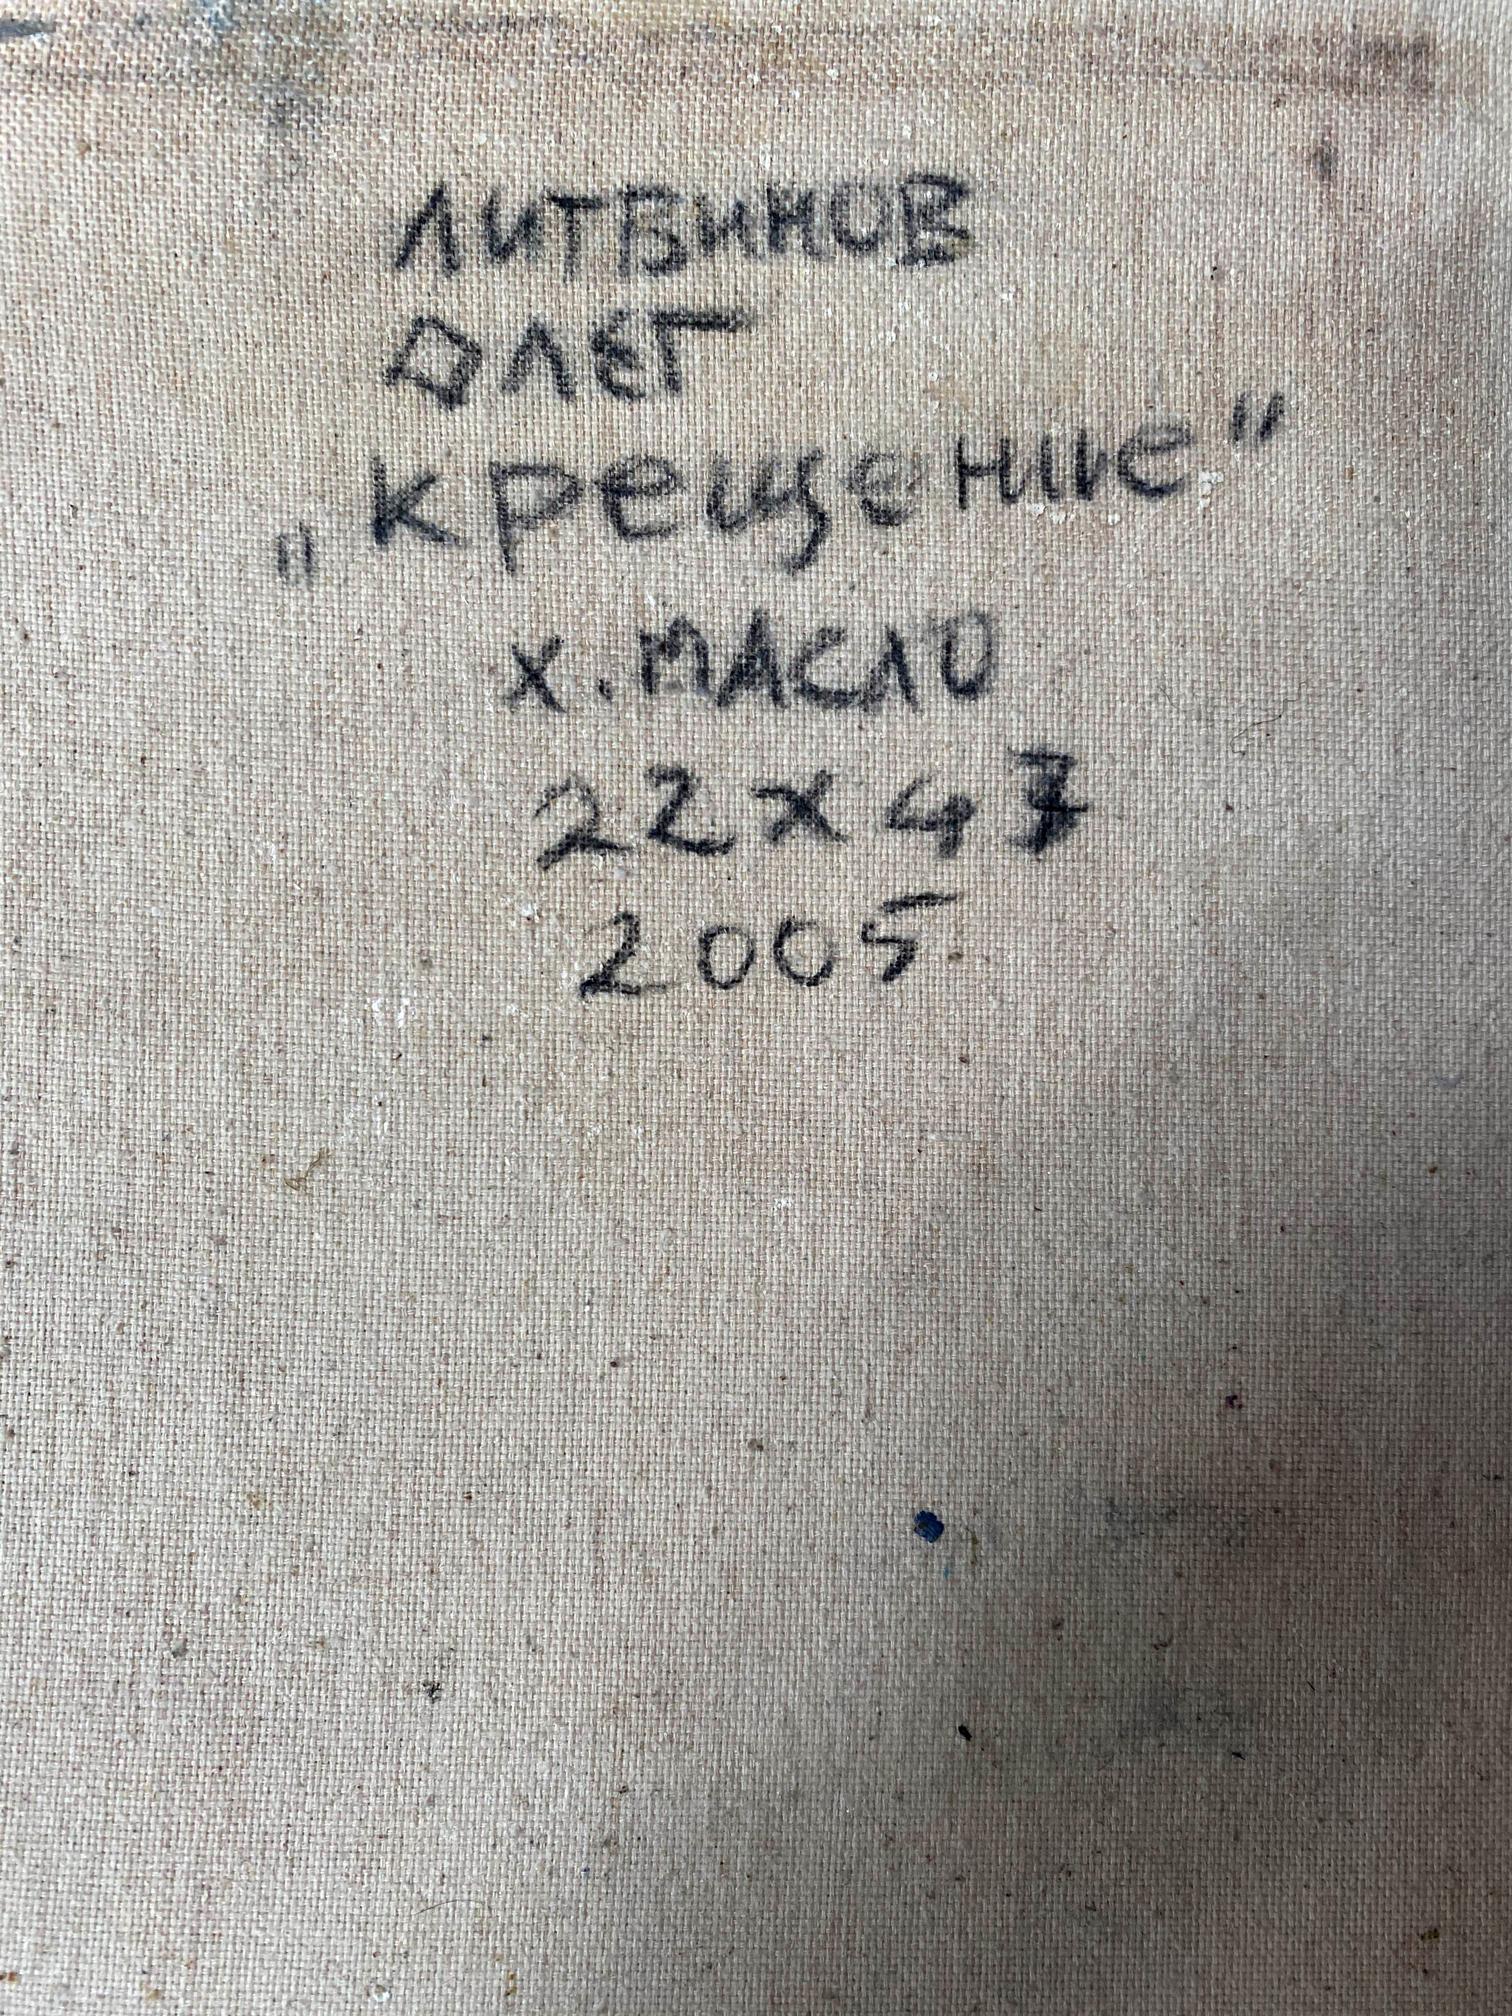 ЛИТВИНОВ
ОЛЕГ
„Крещение"
х. МАСЛО
22 х 47
2005